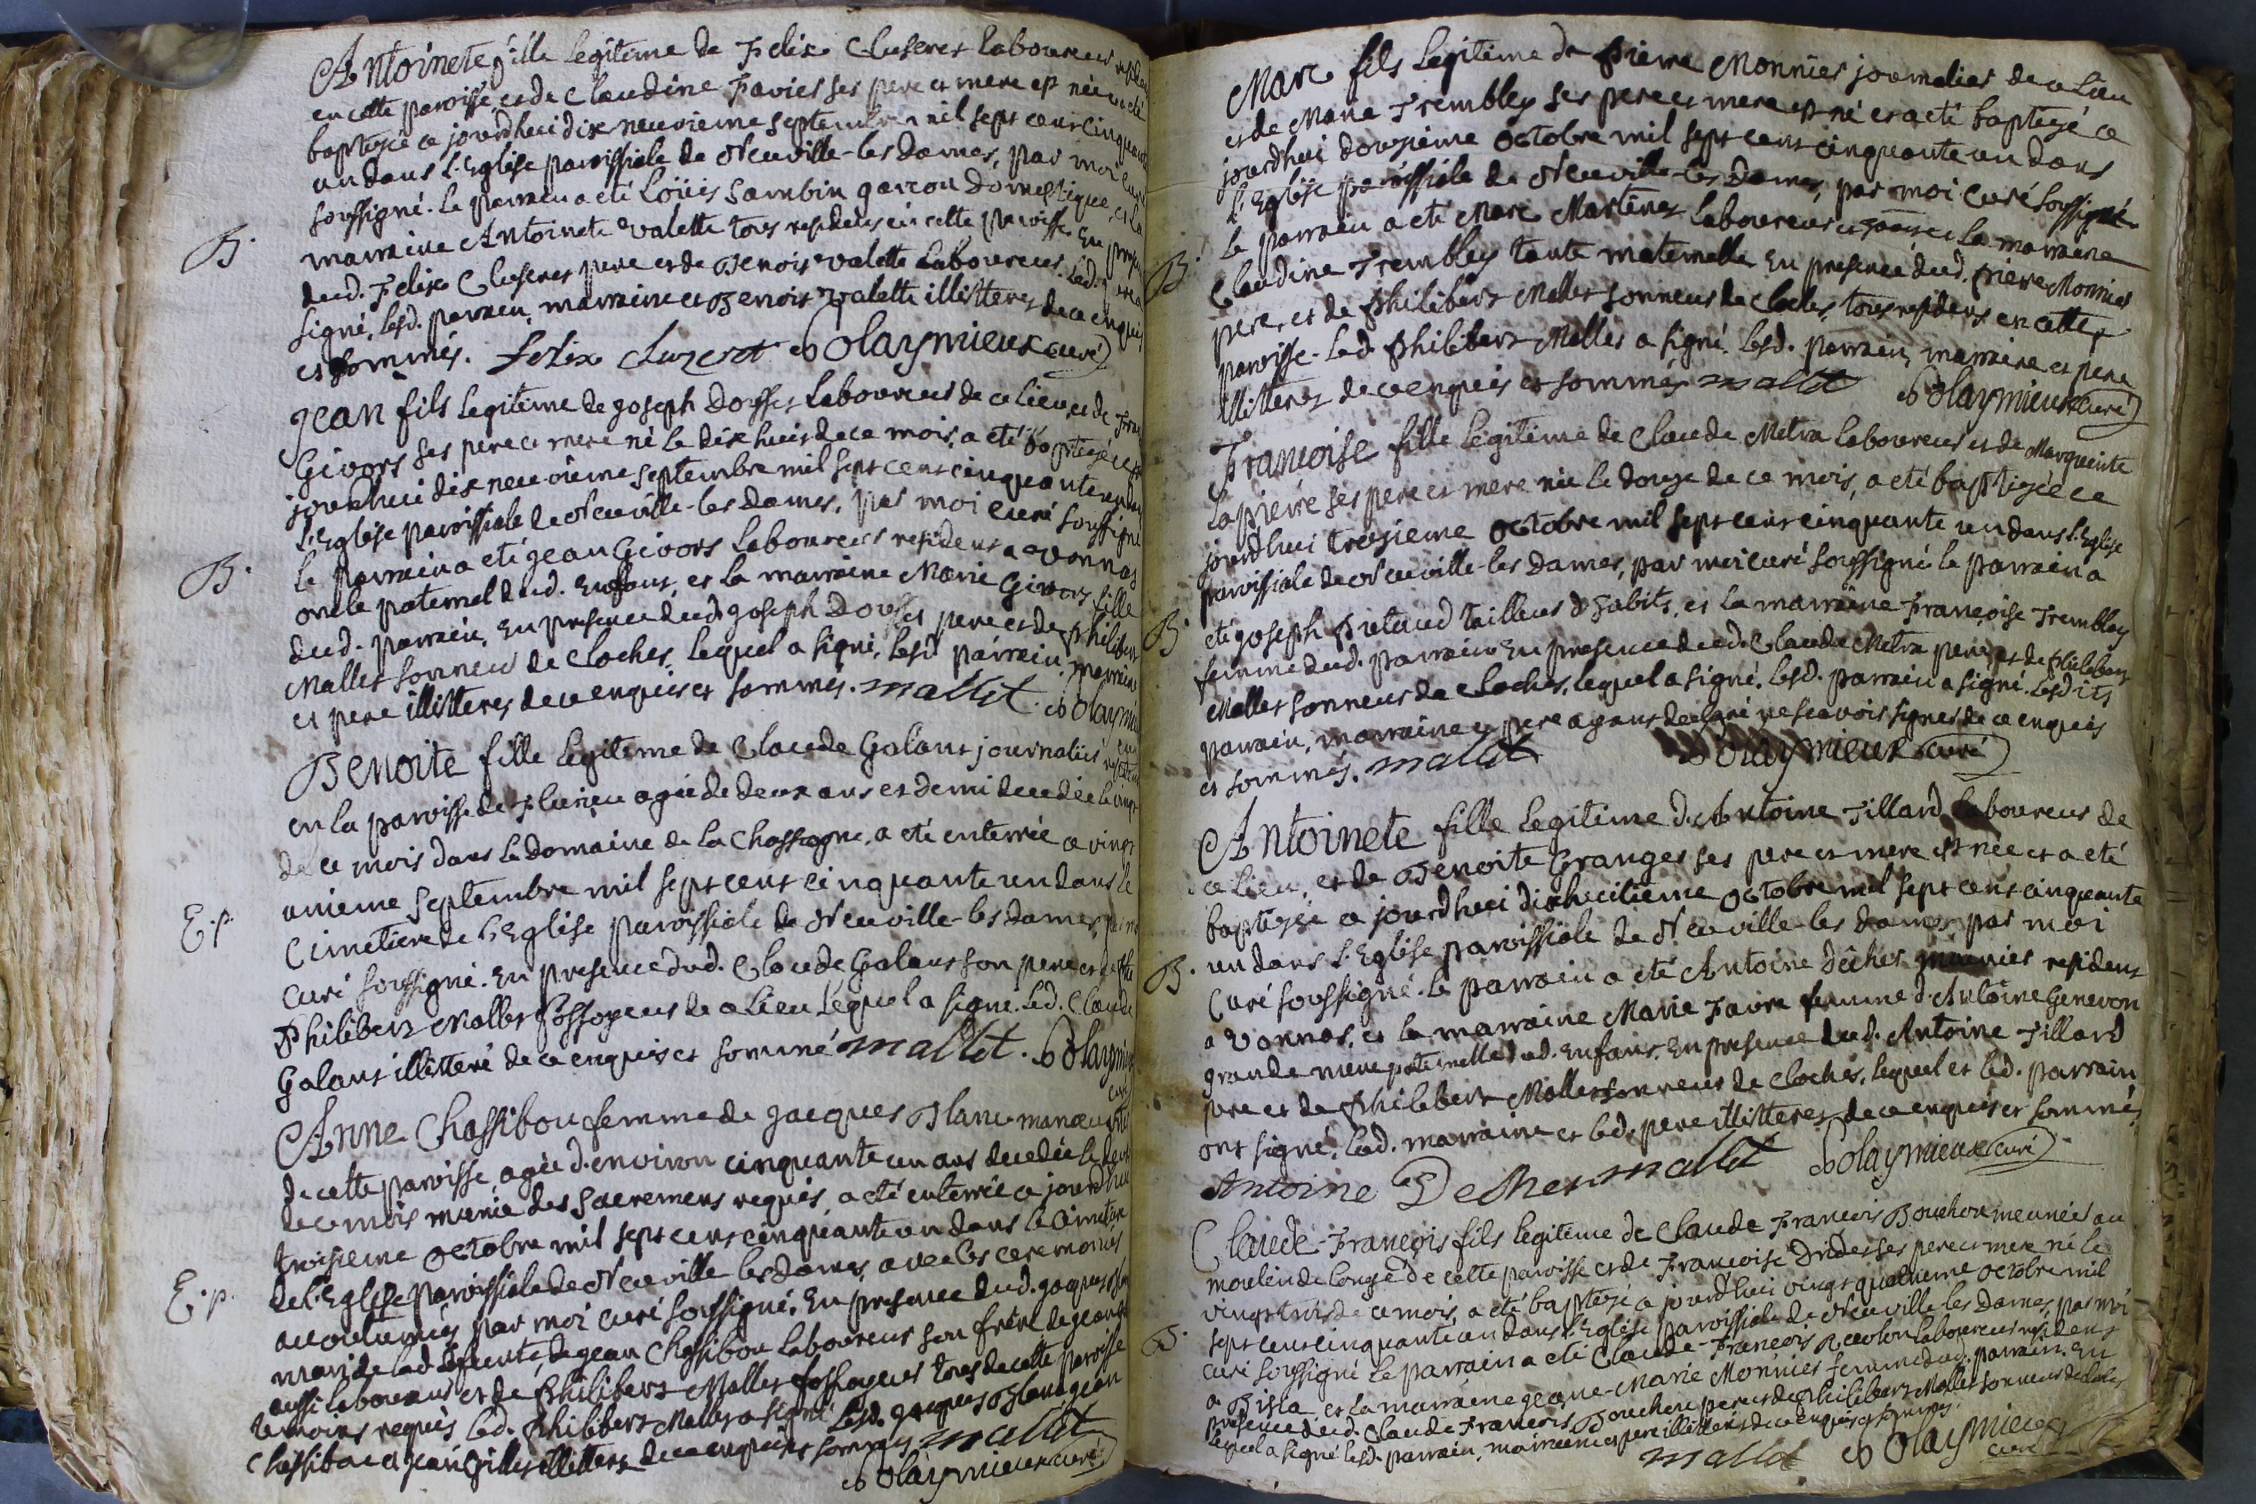 Antoinete fille legitime de Felix Cluseret laboureur
en cette paroisse, et de Claudine Favier ses pere et mere est née et a eté
baptizée ce jourdhui dix neuvieme septembre mil sept cent cinquante
un dans l'Eglise paroissiale de Neuville-les Dames, par moi curé
soussigné. Le parrain a eté Loüis Sambin garcon domestique, et la
B. marraine Antoinete Valette tous residens en cette paroisse. En presence
dud. Felix Cluseret pere et de Benois Valette laboureur. Led. pere a
signé, lesd. parrain, marraine et Benois Valette illitteres de ce enquis
et sommés. felix cluzeret Dolaymieux curé
Jean fils legitime de Joseph Dousset laboureur de ce lieu, et de
Givors ses pere et mere né le dix huit de ce mois, a eté baptizé ce
jourdhui dix neuvieme septembre mil sept cent cinquante un dans
l'Eglise paroissiale de Neuville-les Dames, par moi curé soussigné
B. le parrain a eté Jean Givors laboureur resident a Vonnas
oncle paternel dud. enfant, et la marraine Marie Givors fille
dud. parrain, En presence dud. Joseph Dousset pere et de Philibert
Mallet sonneur de cloches, lequel a signé, lesd. parrain, marraine
et pere illitteres de ce enquis et sommés. mallet. Dolaymieux
curé
Benoite fille legitime de Claude Galant journalier resident
en la paroisse de Fleurieu agée de deux ans et demi decedée le vingt
de ce mois dans le domaine de la Chassagne, a eté enterrée ce vingt
E.p. unieme septembre mil sept cent cinquante un dans le
Cimetiere de l'Eglise paroissiale de Neuville-les Dames, par moi
curé soussigné. En presence dud. Claude Galant son pere et de
Philibert Mallet fossoyeur de ce lieu lequel a signé. Led. Claude
Galant illitteré de ce enquis et sommé mallet. Dolaymieux
curé
Anne Chassibou femme de Jacques Blanc manoeuvre
de cette paroisse, agée d'environ cinquante un ans decedée le deux
de ce mois munie des Sacremens requis, a eté enterrée ce jourdhui
troisieme octobre mil sept cent cinquante un dans le Cimetiere
E.p. de l'Eglise paroissiale de Neuville les Dames, avec les ceremonies
accoutumées par moi curé soussigné. En presence dud. Jacques Blanc
mari de lad. defunte, de Jean Chassibou laboureur son frere de Jean
aussi laboureur et de Philibert Mallet fossoyeur tous de cette paroisse
temoins requis led. Philibert Mallet a signé lesd. Jacques Blanc Jean
Chassibou et Jean Gilles illitteres de ce enquis et sommés mallet
Dolaymieux curé
Marc fils legitime de Pierre Monnier journalier de ce lieu
et de Marie Trembley ses pere et mere est né et a eté baptizé ce
jourdhui douzieme octobre mil sept cent cinquante un dans
l'Eglise paroissiale de Neuville-les Dames, par moi curé soussigné
B. le parrain a eté Marc Martinet laboureur et la marraine
Claudine Trembley tante maternelle En presence dud. Pierre Monnier
pere, et de Philibert Mallet sonneur de cloches, tous residens en cette
paroisse. Led. Philibert Mallet a signé. Lesd. parrain, marraine et pere
illitteres de ce enquis et sommés. mallet Dolaymieux curé
Francoise fille legitime de Claude Metra laboureur et de Marguerite
Lapierre ses pere et mere née le douze de ce mois, a eté baptizée ce
jourdhui treizieme octobre mil sept cent cinquante un dans l'Eglise
paroissiale de Neuville-les Dames, par moi curé soussigné le parrain a
B. eté Joseph Putaud tailleur d'habits, et la marraine Françoise Trembley
femme dud. parrain En presence dud. Claude Metra pere, et de Philibert
Mallet sonneur de cloches, lequel a signé. Lesd. parrain a signé. Lesdits
parrain, marraine et pere ayans declaré ne scavoir signer de ce enquis
et sommés. mallet Dolaymieux curé
Antoinete fille legitime d'Antoine Tillard laboureur de
ce lieu, et de Benoite Granger ses pere et mere est née et a eté
baptizée ce jourdhui dixhuitieme octobre mil sept cent cinquante
un dans l'Eglise paroissiale de Neuville-les Dames par moi
B. Curé soussigné. le parrain a eté Antoine Dêcher resident
a Vonnas, et la marraine Marie Favre femme d'Antoine Genevon
grande mere paternelle dud. enfant. En presence dud. Antoine Tillard
pere et de Philibert Mallet sonneur de cloches, lequel et led. parrain
ont signé, lad. marraine et led. pere illitteres de ce enquis et sommés
Antoine Decher mallet Dolaymieux curé
Claude-François fils legitime de Claude Francois Bouchou meunier au
moulin de Longe de cette paroisse et de Francoise Dridet ses pere et mere né le
vingt trois de ce mois, a eté baptizé ce jourd'hui vingt quatrieme octobre mil
B. sept cent cinquante un dans l'Eglise paroissiale de Neuville les Dames, par moi
curé soussigné le parrain a eté Claude-Francois laboureur resident
a Bizia et la marraine Jeane-Marie Monnier femme dud. parrain. En
presence dud. Claude Francois Bouchou pere et de Philibert Mallet sonneur de cloches
lequel a signé lesd. parrain, marraine et pere illitteres de ce enquis et sommés.
mallet Dolaymieux
curé